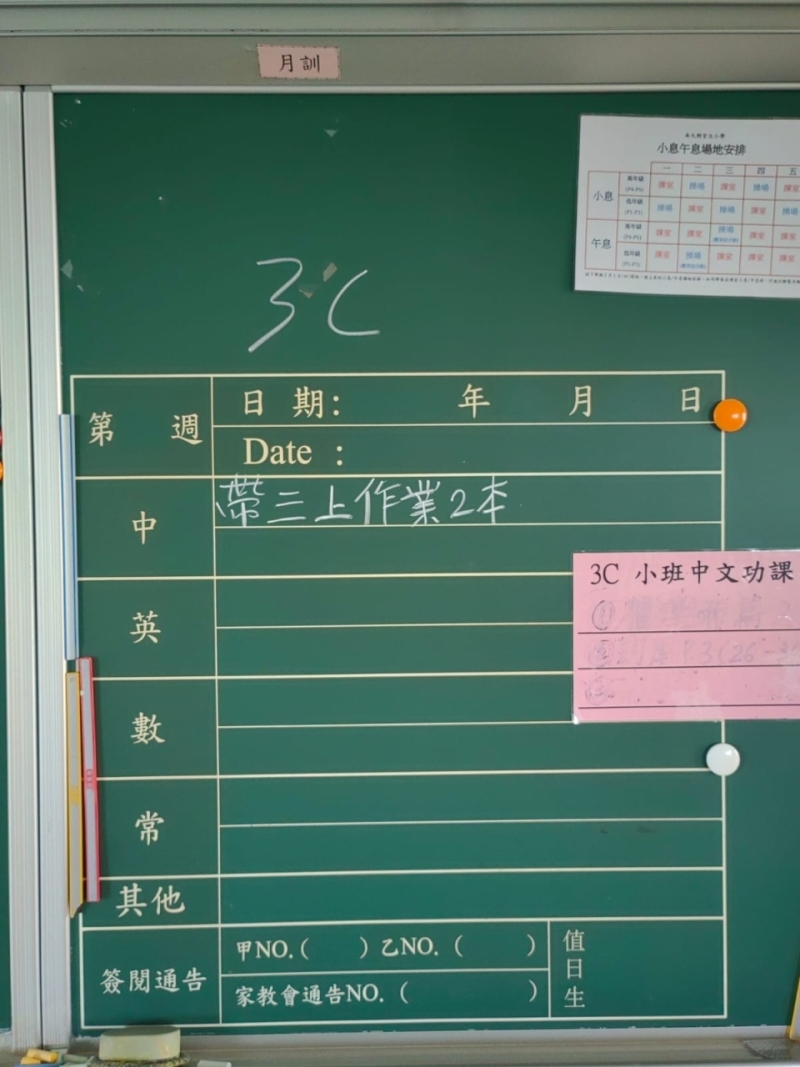 月訓
小息午息場地安排
一 二 三 四 五
小息
高年級
課室 操場 課室 操場 課室
低年級
操場 課室 操場 課室 操場
午息
高年級
課室 課室 操場 課室 課室
低年級
課室 操場 課室 課室 課室
3C
第 週
日期: 年 月 日
Date :
中
帶三上作業2本
英
數
常
其他
簽閱通告
甲NO.( ) 乙NO. ( )
家教會通告NO. ( )
值日生
3C 小班中文功課